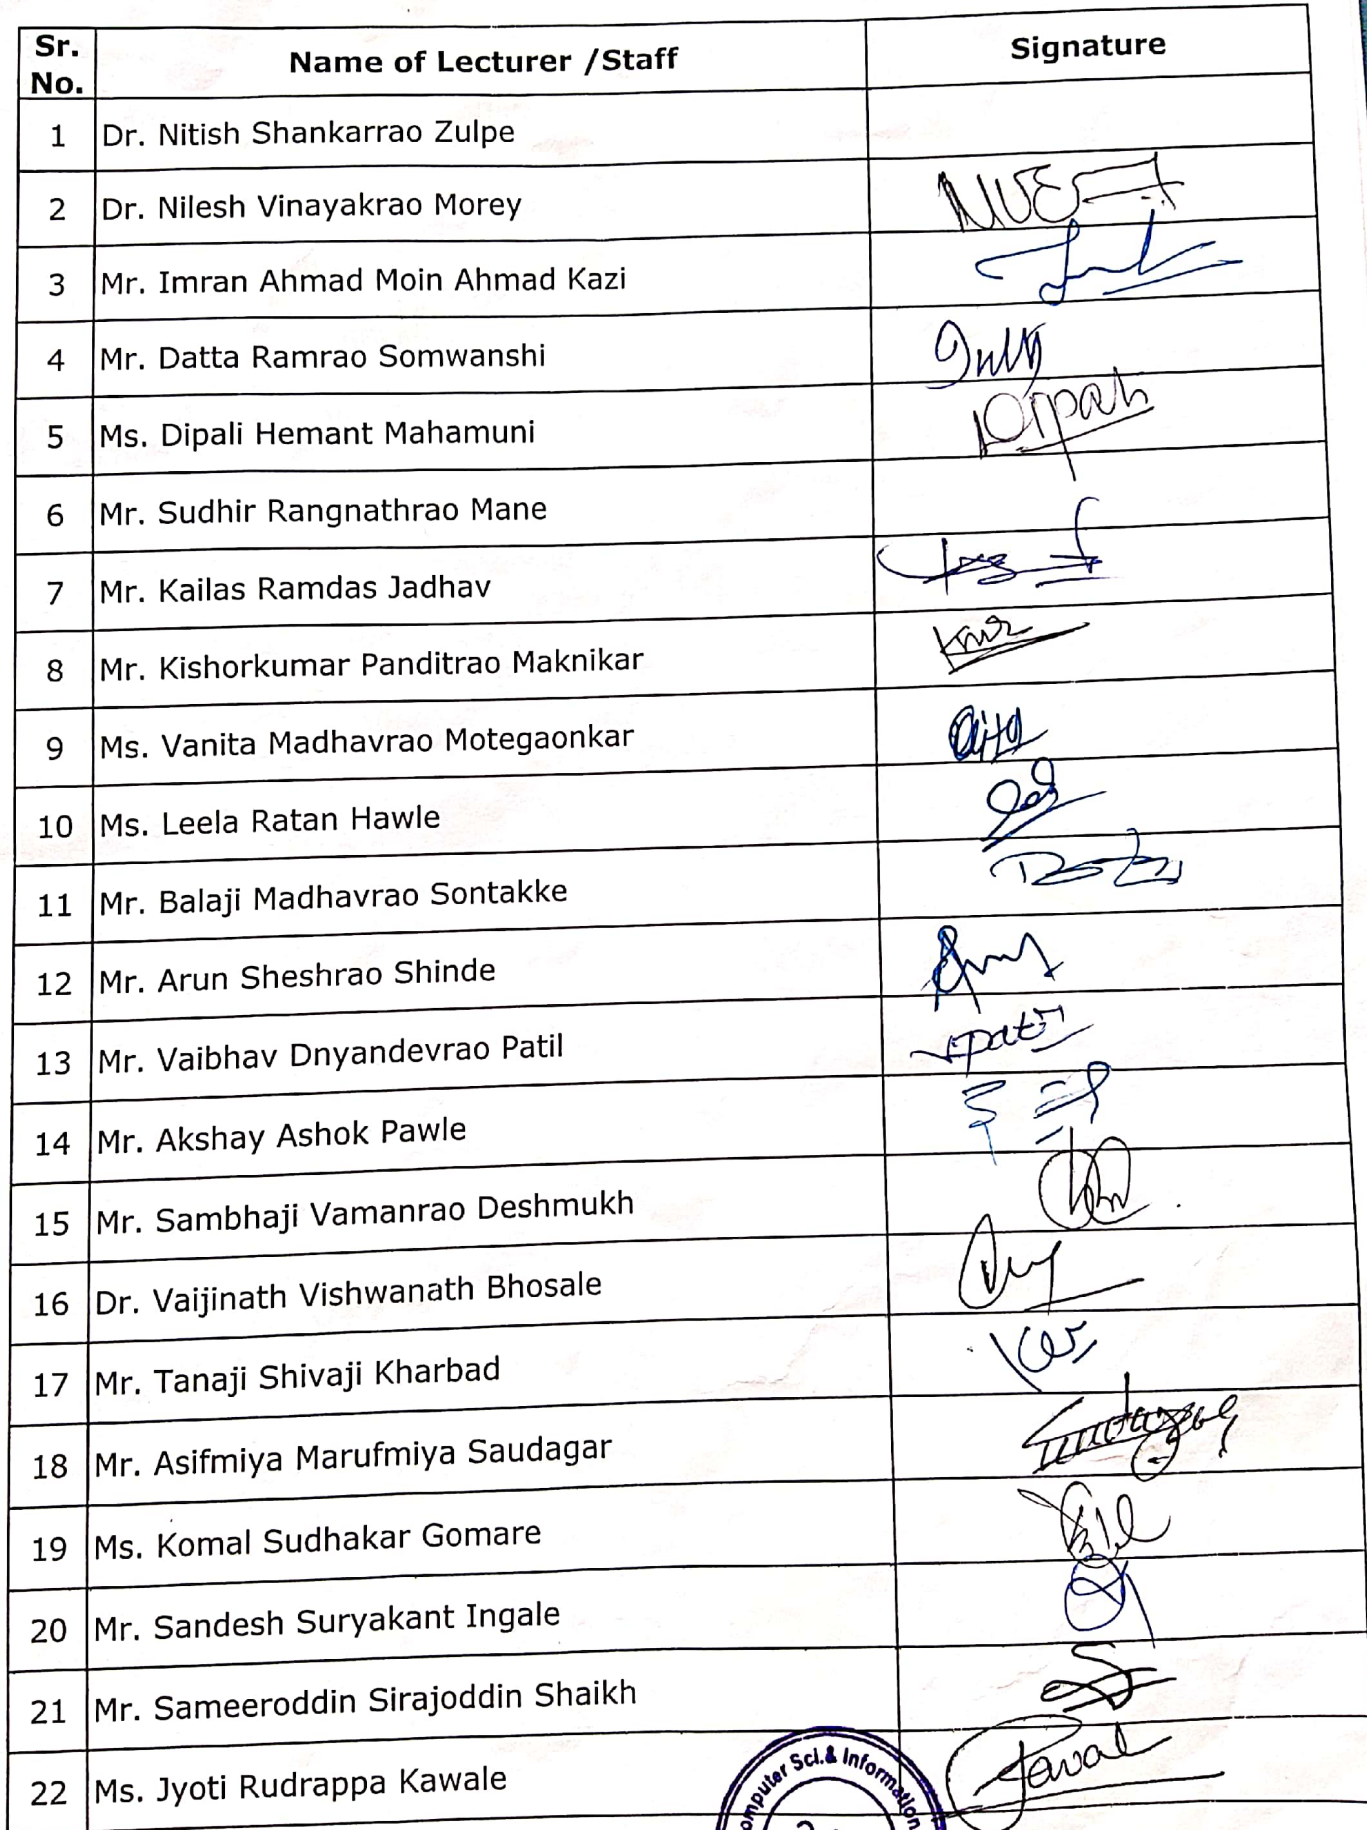 Sr. No. Name of Lecturer /Staff Signature
1 Dr. Nitish Shankarrao Zulpe
2 Dr. Nilesh Vinayakrao Morey
3 Mr. Imran Ahmad Moin Ahmad Kazi
4 Mr. Datta Ramrao Somwanshi
5 Ms. Dipali Hemant Mahamuni
6 Mr. Sudhir Rangnathrao Mane
7 Mr. Kailas Ramdas Jadhav
8 Mr. Kishorkumar Panditrao Maknikar
9 Ms. Vanita Madhavrao Motegaonkar
10 Ms. Leela Ratan Hawle
11 Mr. Balaji Madhavrao Sontakke
12 Mr. Arun Sheshrao Shinde
13 Mr. Vaibhav Dnyandevrao Patil
14 Mr. Akshay Ashok Pawle
15 Mr. Sambhaji Vamanrao Deshmukh
16 Dr. Vaijinath Vishwanath Bhosale
17 Mr. Tanaji Shivaji Kharbad
18 Mr. Asifmiya Marufmiya Saudagar
19 Ms. Komal Sudhakar Gomare
20 Mr. Sandesh Suryakant Ingale
21 Mr. Sameeroddin Sirajoddin Shaikh
22 Ms. Jyoti Rudrappa Kawale
omputer Sci.& Information